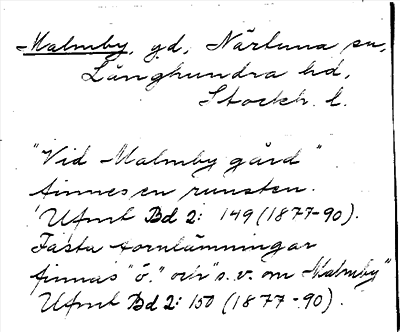 Malmby, gd, Närtuna sn,
Långhundra hd,
Stockh. l.
"Vid Malmby gård"
finnes en runsten.
Ufmt Bd 2: 149 (1877-90).
Fasta fornlämningar
finnas "ö." och "s.v. om Malmby"
Ufmt Bd 2: 150 (1877-90).